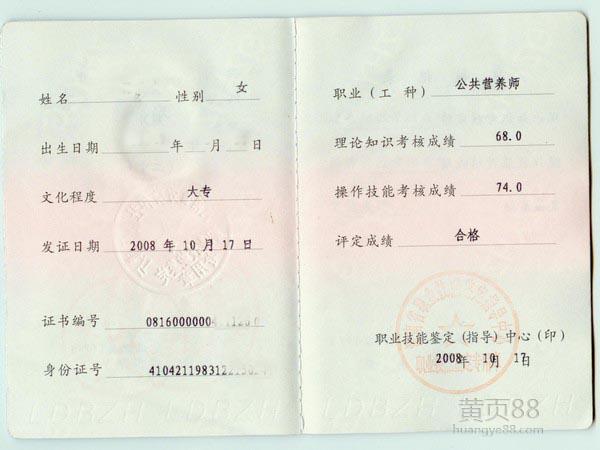 姓名 性别 女
出生日期 年 月 日
文化程度 大专
发证日期 2008 年 10 月 17 日
证书编号 0816000000
身份证号
职业（工 种） 公共营养师
理论知识考核成绩 68.0
操作技能考核成绩 74.0
评定成绩 合格
职业技能鉴定（指导）中心（印）
2008年 10月 17日
LDBZH
黄页88
huangye88.com